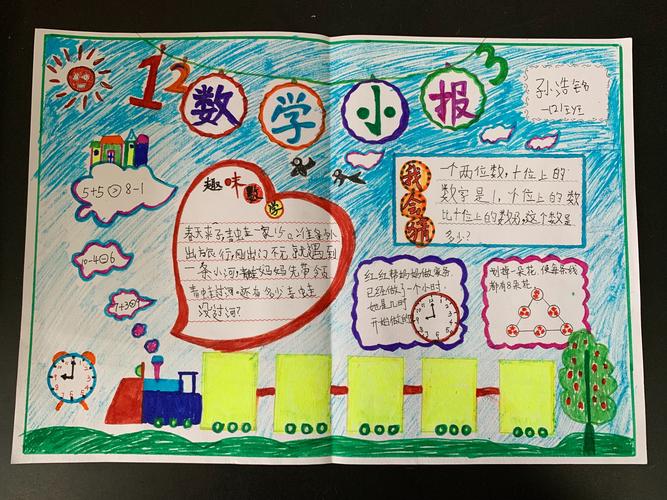 1 2 3
数学小报
孙浩铭
一(2)班
5+5>8-1
10-4=6
7+3=9
趣味数学
春天来了,青蛙一家
出去旅行,刚出门不久就遇到
一条小河,青蛙妈妈先带领
青蛙过河,还有多少青蛙
没过河?
我会猜
一个两位数,十位上的
数字是1,个位上的数
比十位上的数多,这个数是
多少?
红红帮妈妈做家务,
已经做了一个小时,
她是几时
开始做的
划掉一朵花,使每条线
都有8朵花